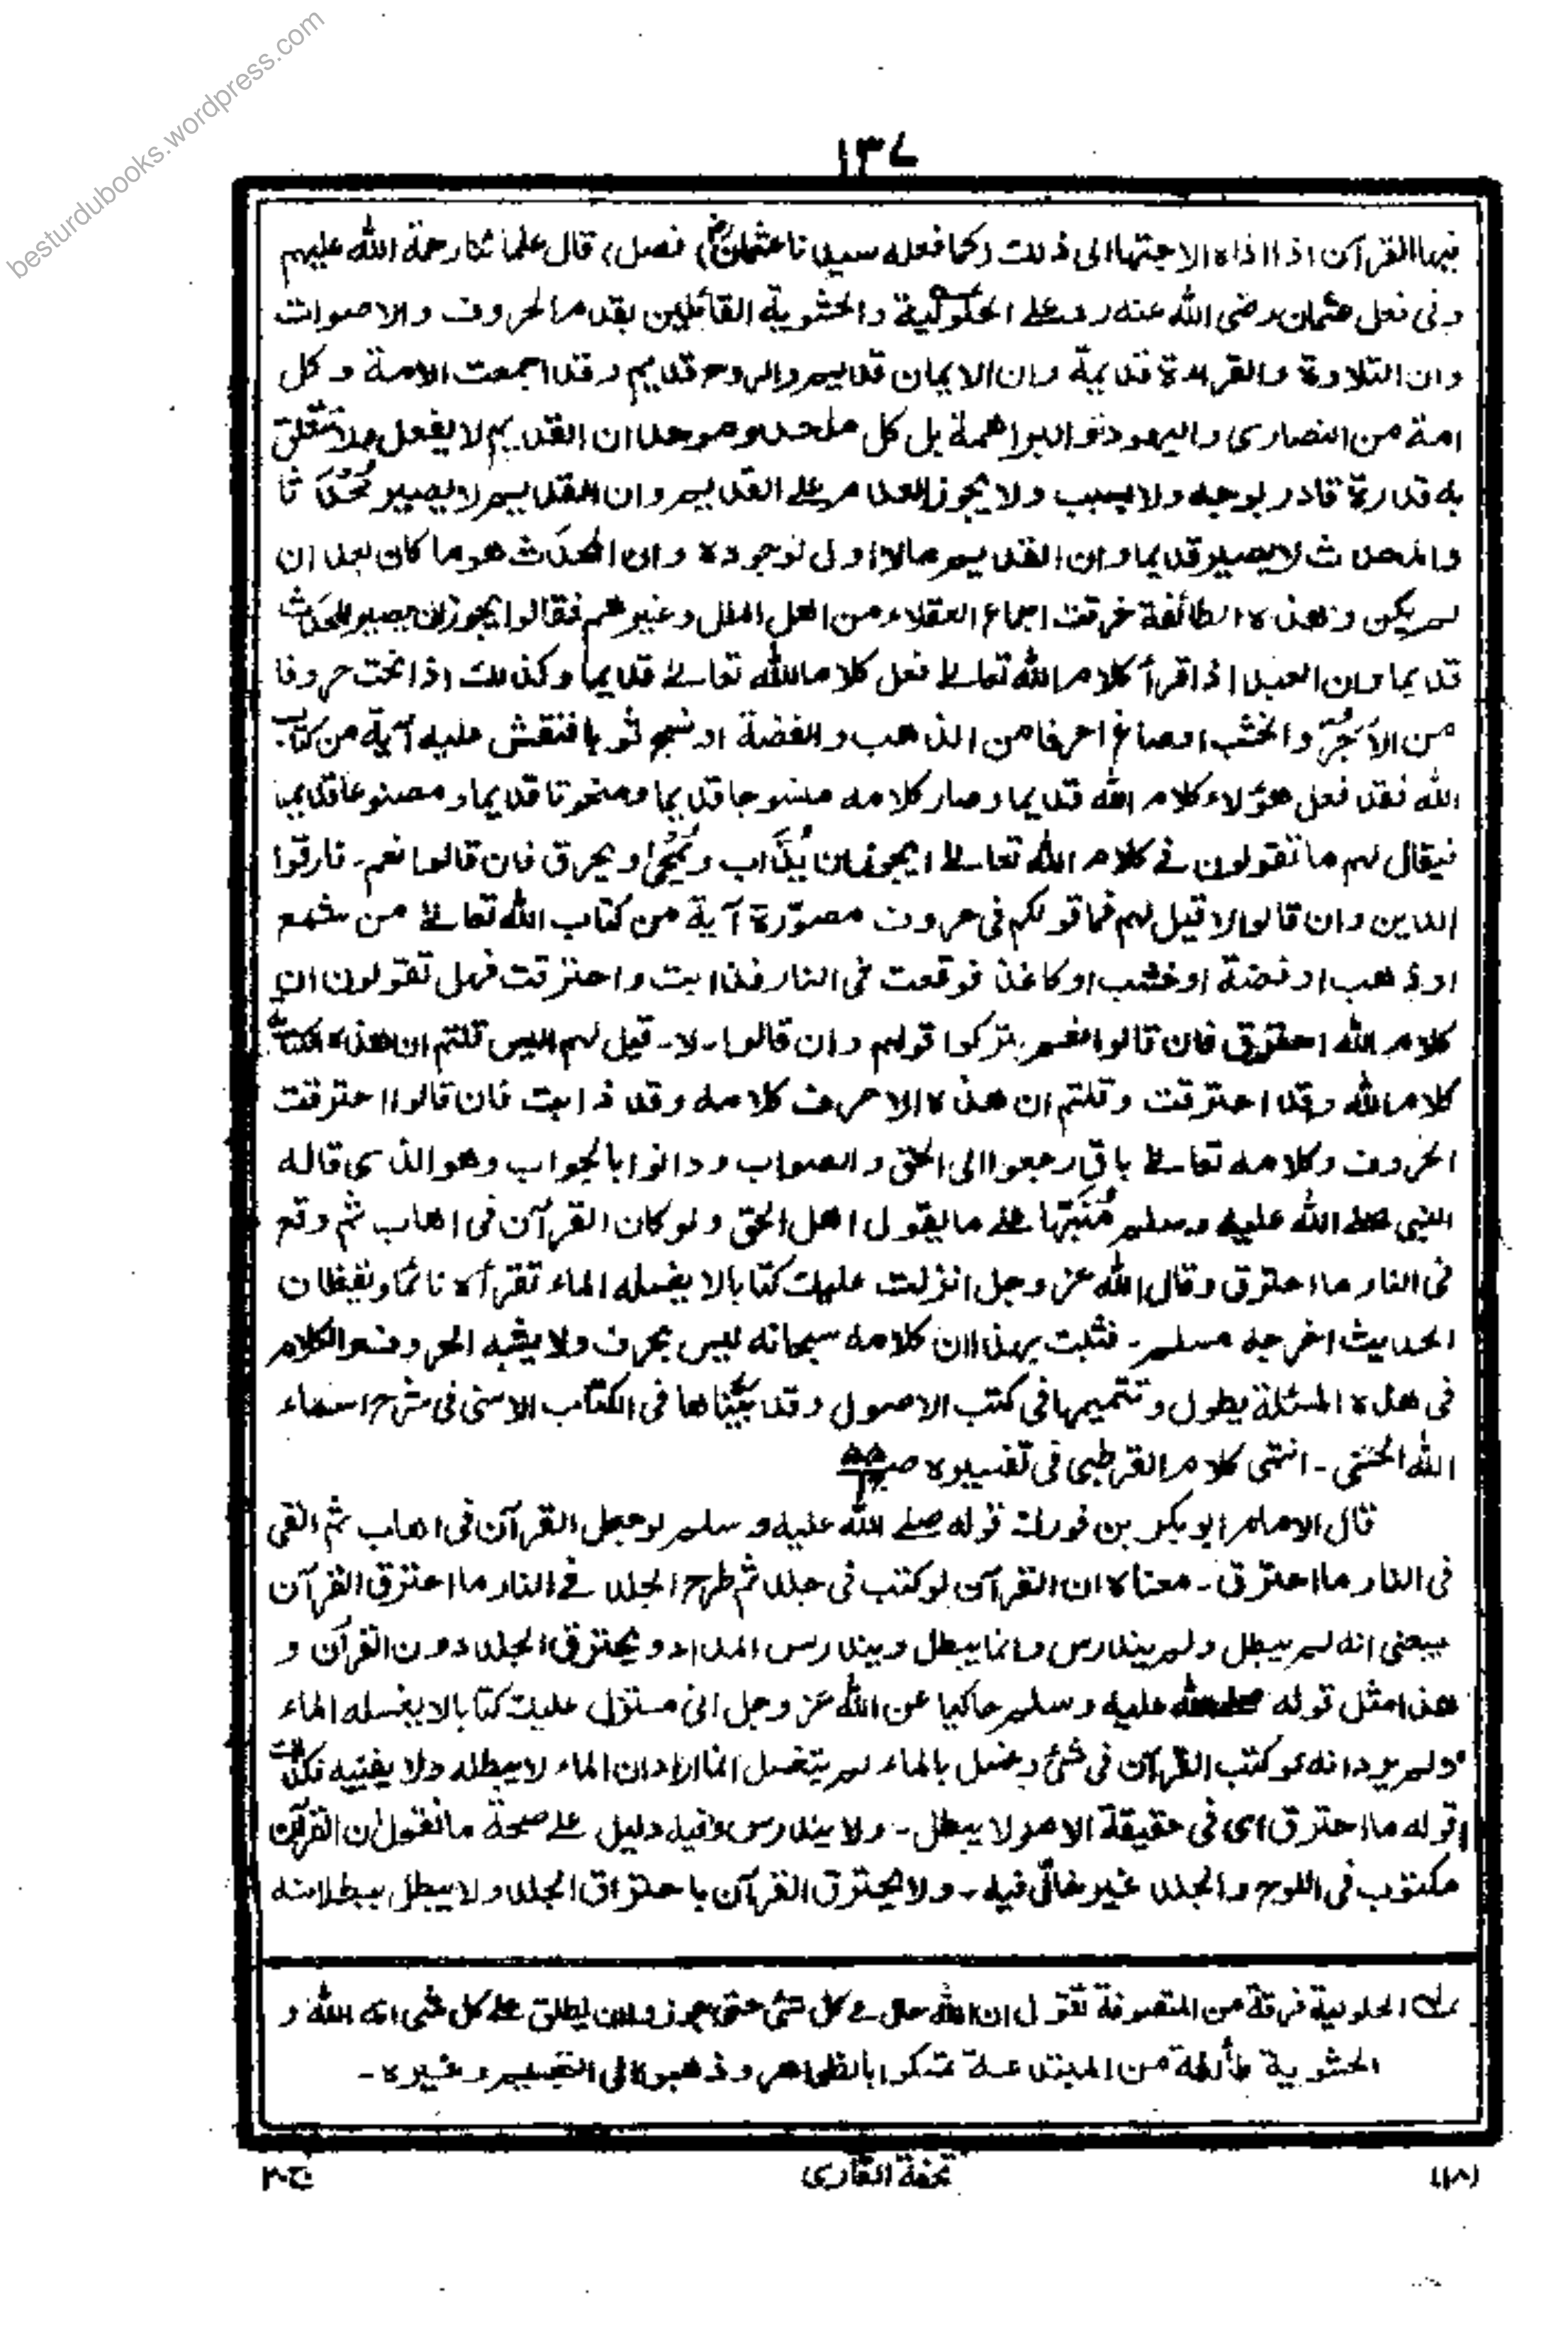 besturdubooks.wordpress.com
١٣٧
فيها القرآن اذا اداه الاجتهاد الى ذلك (كما فعله سيدنا عثمانؓ) فصل، قال علمائنا رحمة الله عليهم
وفى فعل عثمان رضى الله عنه رد على الحلولية والحشوية القائلين بقدم الحروف والاصوات
وان التلاوة والقراءة قديمة وان الايمان قديم والروح قديم وقد اجمعت الامة وكل
امة من النصارى واليهود والبراهمة بل كل ملحد وموحد ان القديم لا يفعل ولا تتعلق
به قدرة قادر بوجه ولا بسبب ولا يجوز العدم على القديم وان القديم لا يصير مُحْدَثا
والمحدث لا يصير قديما وان القديم مالا اول لوجوده وان المحدَث هو ما كان بعد ان
لم يكن وهذه الطائفة خرقت اجماع العقلاء من اهل الملل وغيرهم فقالوا يجوز ان يصير المحدَث
قديما وان العبد اذا قرأ كلام الله تعالى فعل كلاما لله تعالى قديما وكذلك اذا نحت حروفا
من الآجُرّ والخشب او صاغ احرفا من الذهب والفضة او نسج ثوبا فنقش عليه آية من كتاب
الله فقد فعل هؤلاء كلام الله قديما وصار كلامه منسوجا قديما ومنحوتا قديما ومصنوعا قديما
فيقال لهم ما تقولون فى كلام الله تعالى ايجوز ان يُذَاب ويُمْحٰى ويحرق فان قالوا نعم ـ فارقوا
الدين وان قالوا لا قيل لهم فما قولكم فى حروف مصوّرة آية من كتاب الله تعالى من شمع
او ذهب او فضة او خشب او كاغذ فوقعت فى النار فذابت واحترقت فهل تقولون ان
كلام الله احترق فان قالوا نعم ـ تركوا قولهم وان قالوا ـ لا ـ قيل لهم اليس قلتم ان هذه الكتابة
كلام الله وقد احترقت وقلتم ان هذه الاحرف كلامه وقد ذابت فان قالوا احترقت
الحروف وكلامه تعالى باق رجعوا الى الحق والصواب ودانوا بالجواب وهو الذى قاله
النبى صلى الله عليه وسلم مُنَبِّهًا على ما يقول اهل الحق ولو كان القرآن فى اهاب ثم وقع
فى النار ما احترق وقال الله عز وجل انزلت عليك كتابا لا يغسله الماء تقرأه نائما ويقظان
الحديث اخرجه مسلم ـ فثبت بهذا ان كلامه سبحانه ليس بحرف ولا يشبه الحروف والكلام
فى هذه المسئلة يطول وتتميمها فى كتب الاصول وقد بَيَّنَّاها فى الكتاب الاسنى فى شرح اسماء
الله الحسنى ـ انتهى كلام القرطبى فى تفسيره
قال الامام ابو بكر بن فورك قوله صلى الله عليه وسلم لو جعل القرآن فى اهاب ثم القى
فى النار ما احترق ـ معناه ان القرآن لو كتب فى جلد ثم طرح الجلد فى النار ما احترق القرآن
بمعنى انه لم يبطل ولم يندرس وانما يبطل ويندرس المداد ويحترق الجلد دون القرآن و
هذا مثل قوله صلى الله عليه وسلم حاكيا عن الله عز وجل انى منزل عليك كتابا لا يغسله الماء
ولم يرد انه لو كتب القرآن فى شئ وغسل بالماء لم ينغسل انما اراد ان الماء لا يبطله ولا يفنيه فكذلك
قوله ما احترق اى فى حقيقة الامر لا يبطل ـ ولا يندرس وفيه دليل على صحة ما نقول ان القرآن
مكتوب فى اللوح والجلد غير حالّ فيه ـ ولا يحترق القرآن باحتراق الجلد ولا يبطل ببطلانه
الحلولية فرقة من المتصوفة تقول ان الله حال فى كل شئ حتى جوزوا ان يطلق على كل شئ انه الله و
الحشوية طائفة من المبتدعة تمسكوا بالظواهر وذهبوا الى التجسيم وغيره ـ
(١٨)
تحفة القارى
ج ٢٠